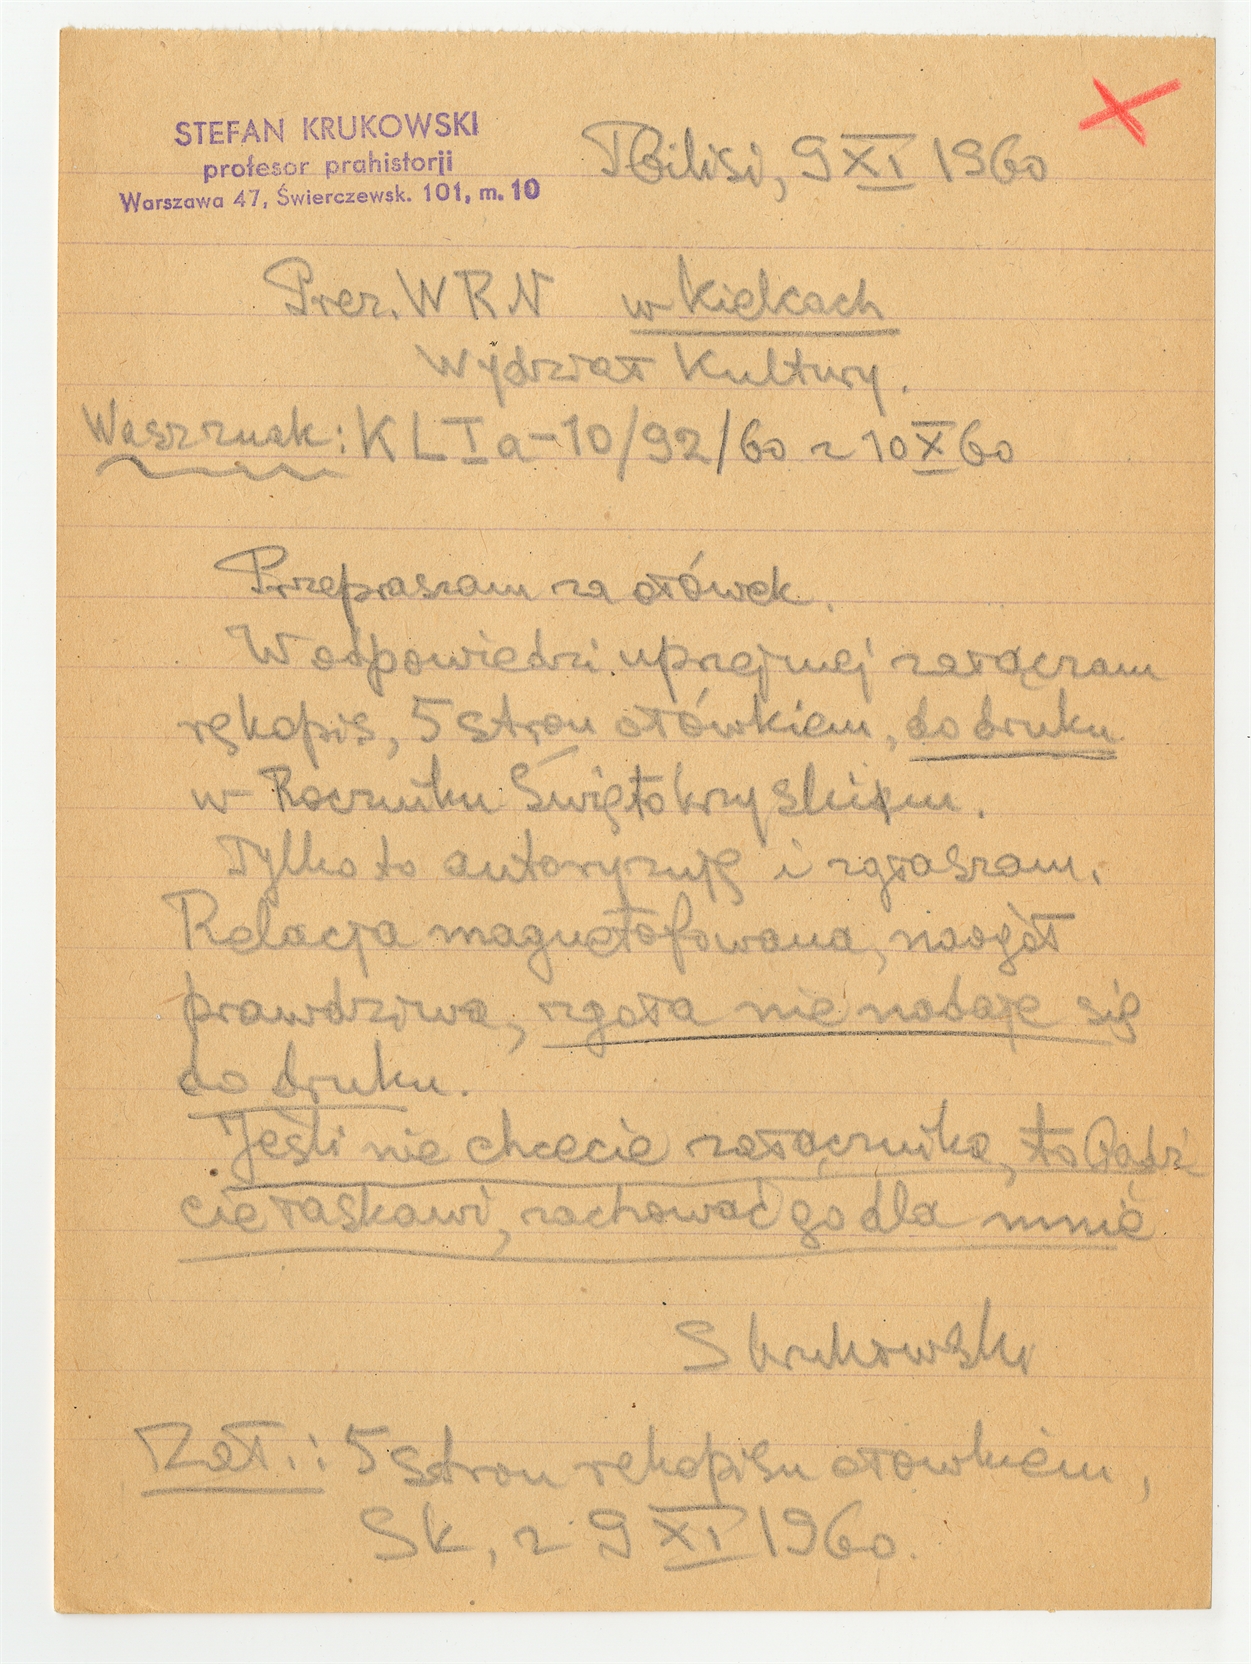 STEFAN KRUKOWSKI
profesor prahistorji
Warszawa 47, Świerczewsk. 101, m. 10
Tbilisi, 9 XI 1960
Prez. WRN w Kielcach
Wydział Kultury.
Wasz znak: KL I a-10/92/60 z 10 X 60
Przepraszam za ołówek.
W odpowiedzi uprzejmej załączam
rękopis, 5 stron ołówkiem, do druku
w Roczniku Świętokrzyskim.
Tylko to autoryzuję i zgłaszam.
Relacja magnetofowana, naogół
prawdziwa, zgoła nie nadaje się
do druku.
Jeśli nie chcecie załącznika, to bądź
cie łaskawi, zachować go dla mnie
S Krukowski
Zał.: 5 stron rękopisu ołówkiem,
Sk, z 9 XI 1960.